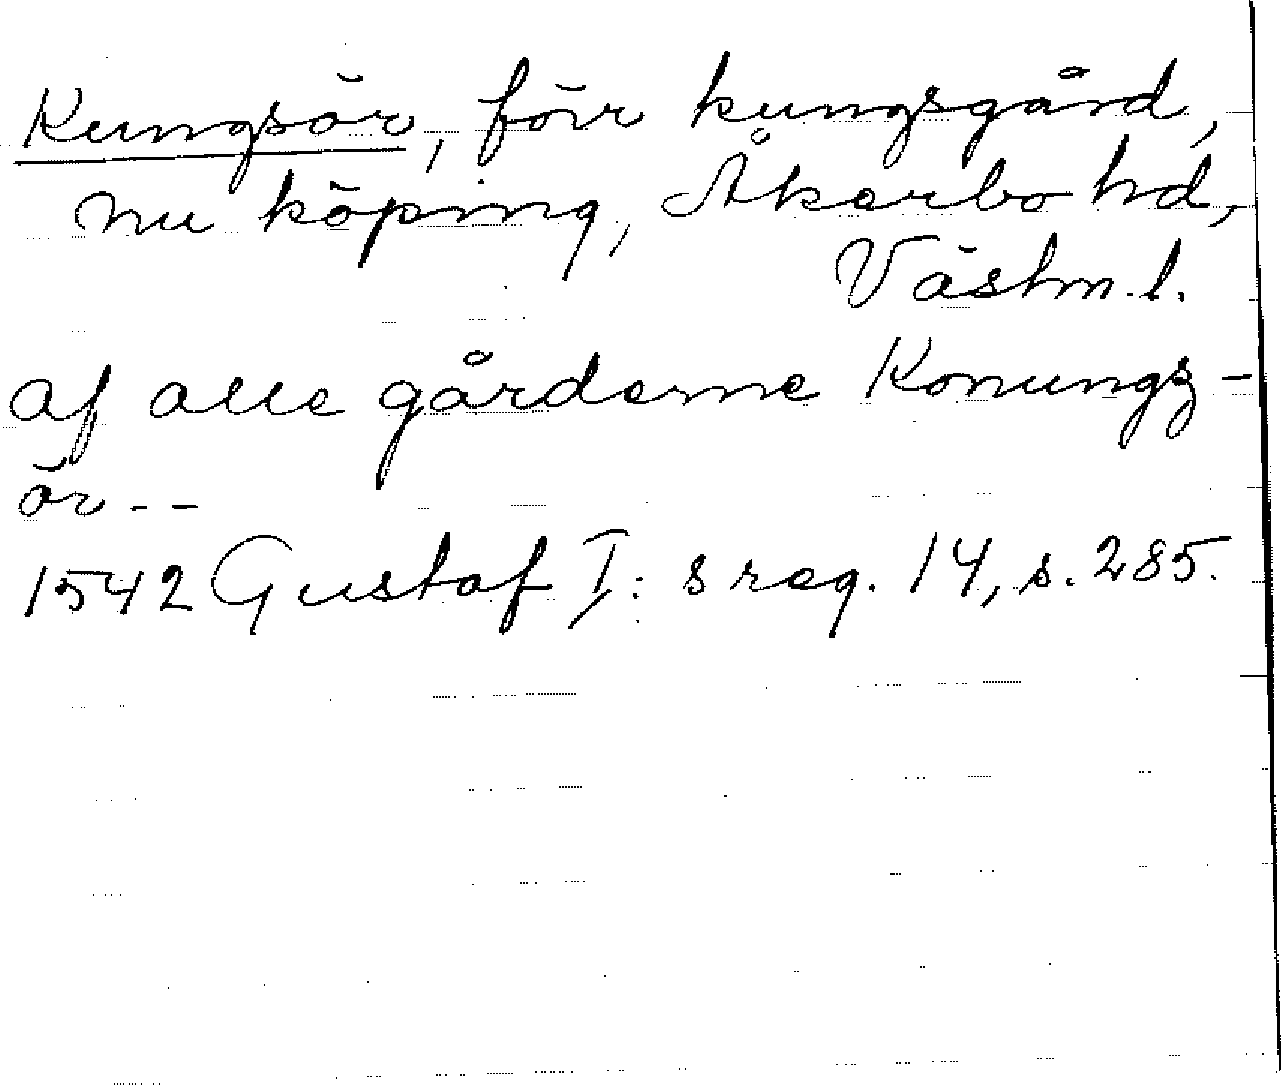 Kungsör, förr kungsgård,
nu köping, Åkerbo hd,
Västm. l.
af alle gårderne Konungz-
ör - -
1542 Gustaf I: s reg. 14, s. 285.